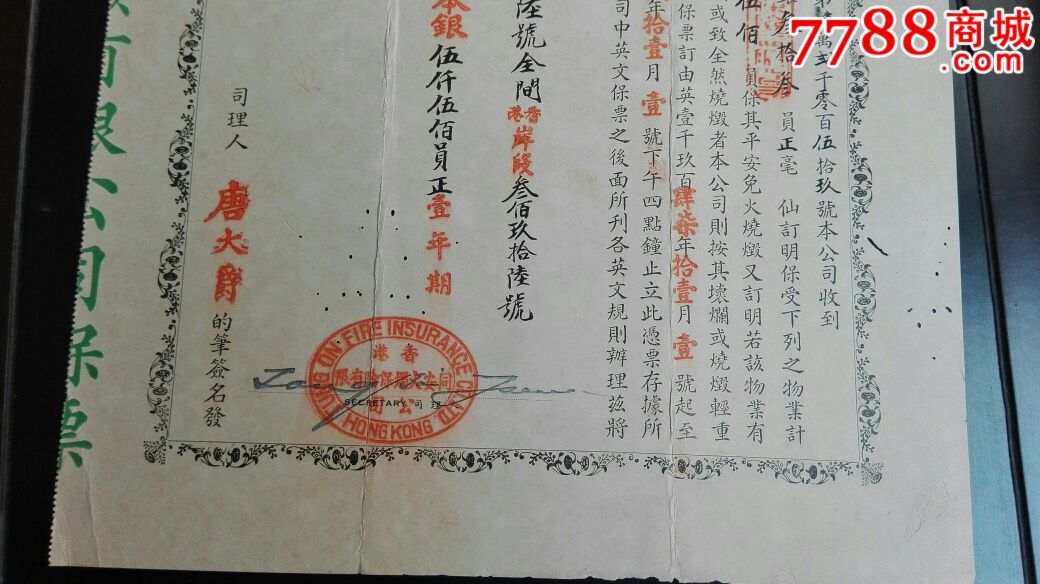 7788商城
.com
萬弍千零百伍拾玖號本公司收到
叁拾叁員正毫仙訂明保受下列之物業計
伍佰員保其平安免火燒燬又訂明若該物業有
或致全然燒燬者本公司則按其壞爛或燒燬輕重
保票訂由英壹千玖百肆柒年拾壹月壹號起至
年拾壹月壹號下午四點鐘止立此憑票存據所
司中英文保票之後面所刊各英文規則辦理茲將
陸號全間香港岸段叁佰玖拾陸號
本銀伍仟伍佰員正壹年期
TUNG ON FIRE INSURANCE CO LTD
香港
同安火燭保險有限
公司
SECRETARY 司理
HONG KONG
司理人唐大爵的筆簽名發
有限公司保票